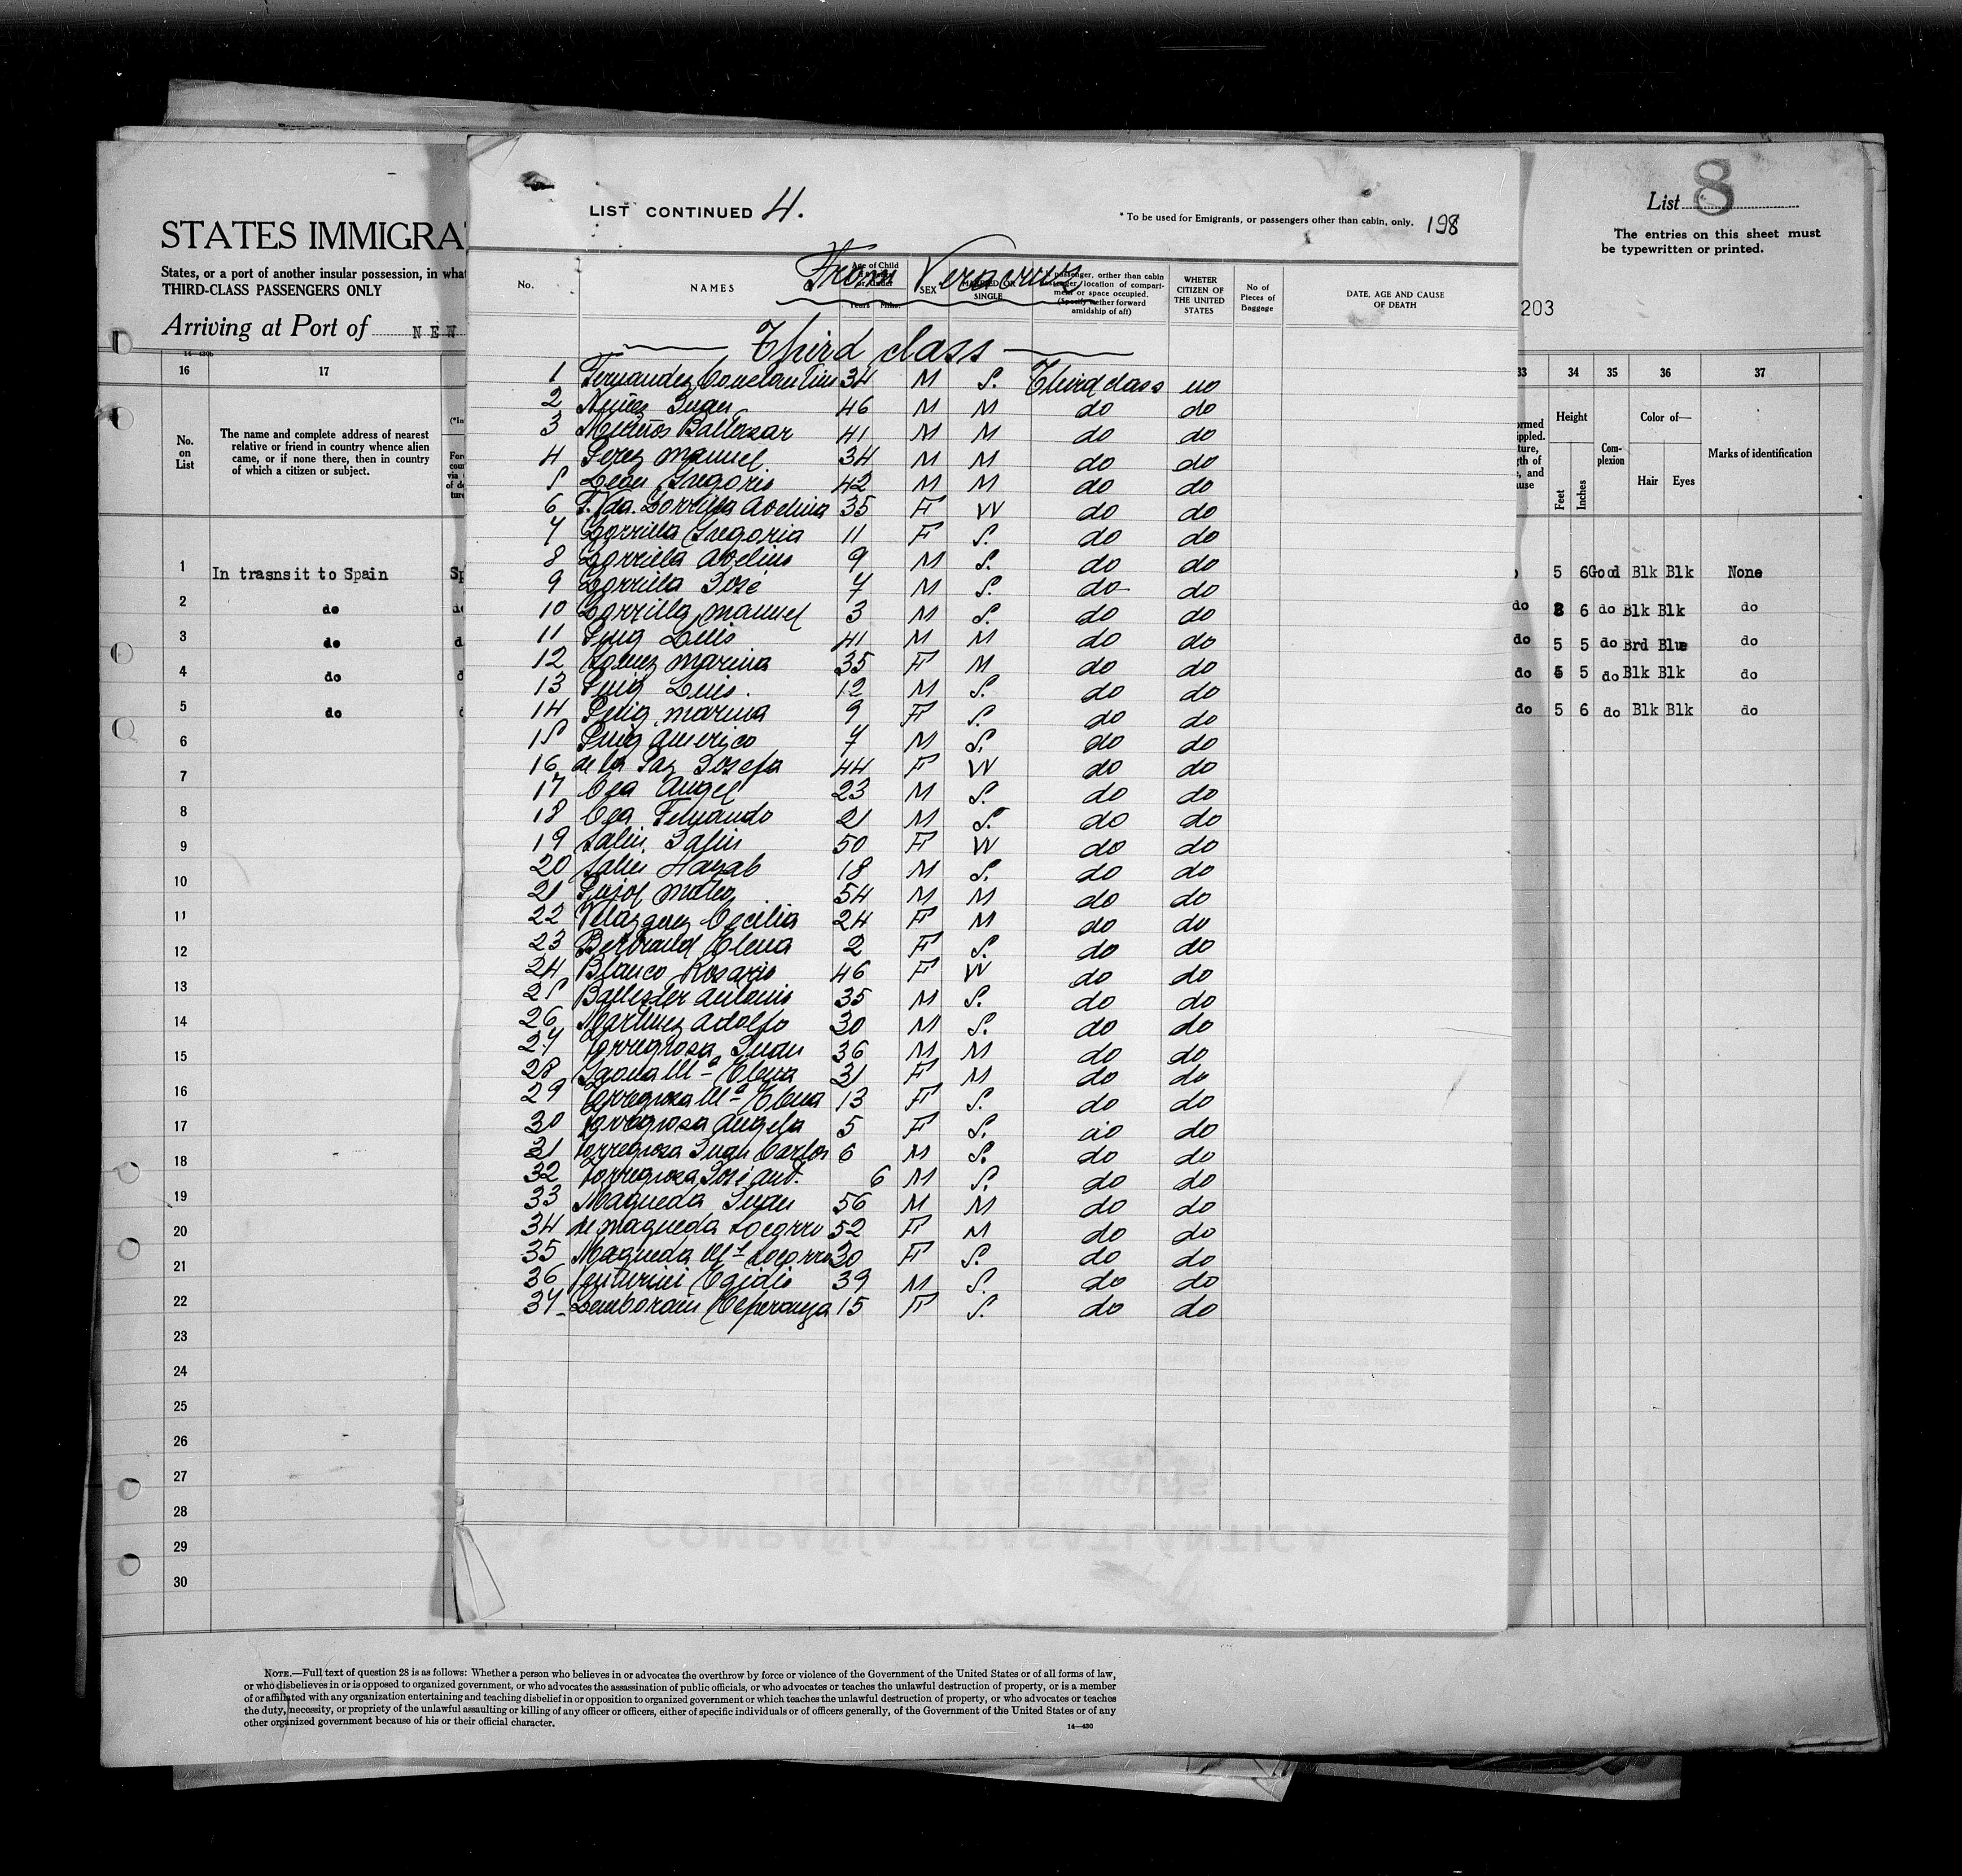 STATES IMMIGRA
States, or a port of another insular possession, in what
THIRD-CLASS PASSENGERS ONLY
Arriving at Port of NEW
14—430b
16 17
No. on List
The name and complete address of nearest
relative or friend in country whence alien
came, or if none there, then in country
of which a citizen or subject.
1 In trasnsit to Spain Sp
2 do
3 do
4 do
5 do
6
7
8
9
10
11
12
13
14
15
16
17
18
19
20
21
22
23
24
25
26
27
28
29
30
LIST CONTINUED 4.
* To be used for Emigrants, or passengers other than cabin, only. 198
From Veracruz
No. NAMES Age of Child SEX MARRIED OR SINGLE
passenger, orther than cabin
location of compart-
ment or space occupied.
amidship of aft)
WHETER CITIZEN OF THE UNITED STATES
No of Pieces of Baggage
DATE, AGE AND CAUSE OF DEATH
Third class
1 Fernandez Constantino 34 M S. Third class no
2 Nuñez Juan 46 M M do do
3 Baltasar 41 M M do do
4 Perez Manuel 34 M M do do
5 Leon Gregorio 42 M M do do
6 Zorrilla Avelina 35 F W do do
7 Zorrilla Gregoria 11 F S. do do
8 Zorrilla Avelino 9 M S. do do
9 Zorrilla José 7 M S. do do
10 Zorrilla Manuel 3 M S. do do
11 Puig Luis 41 M M do do
12 Marina 35 F M do do
13 Puig Luis. 12 M S. do do
14 Puig Marina 9 F S. do do
15 Puig Americo 7 M S. do do
16 de la Paz Josefa 44 F W do do
17 Cea Angel 23 M S. do do
18 Cea Fernando 21 M S. do do
19 Salin 50 F W do do
20 Salin 18 M S. do do
21 Pujol Mateo 54 M M do do
22 Velazquez Cecilia 24 F M do do
23 Bertrand Elena 2 F S. do do
24 Blanco Rosario 46 F W do do
25 Ballester Antonio 35 M S. do do
26 Martinez Adolfo 30 M S. do do
27 Torregrosa Juan 36 M M do do
28 Gaona Mª Elena 31 F M do do
29 Torregrosa Mª Elena 13 F S. do do
30 Torregrosa Angela 5 F S. do do
31 Torregrosa Juan Carlos 6 M S. do do
32 Torregrosa José Ant. 6 M S. do do
33 Maqueda Juan 56 M M do do
34 de Maqueda Socorro 52 F M do do
35 Maqueda Mª Socorro 30 F S. do do
36 Venturini Egidio 39 M S. do do
37 Lemborain Esperanza 15 F S. do do
LIST OF PASSENGERS
COMPAÑIA TRASATLÁNTICA
List 8
The entries on this sheet must
be typewritten or printed.
203
33 34 35 36 37
Height Feet Inches
Com-plexion
Color of— Hair Eyes
Marks of identification
5 6 Good Blk Blk None
do 6 do Blk Blk do
do 5 5 do Brd Blue do
do 5 5 do Blk Blk do
do 5 6 do Blk Blk do
NOTE.—Full text of question 28 is as follows: Whether a person who believes in or advocates the overthrow by force or violence of the Government of the United States or of all forms of law,
or who disbelieves in or is opposed to organized government, or who advocates the assassination of public officials, or who advocates or teaches the unlawful destruction of property, or is a member
of or affiliated with any organization entertaining and teaching disbelief in or opposition to organized government or which teaches the unlawful destruction of property, or who advocates or teaches
the duty, necessity, or propriety of the unlawful assaulting or killing of any officer or officers, either of specific individuals or of officers generally, of the Government of the United States or of any
other organized government because of his or their official character.
14—430